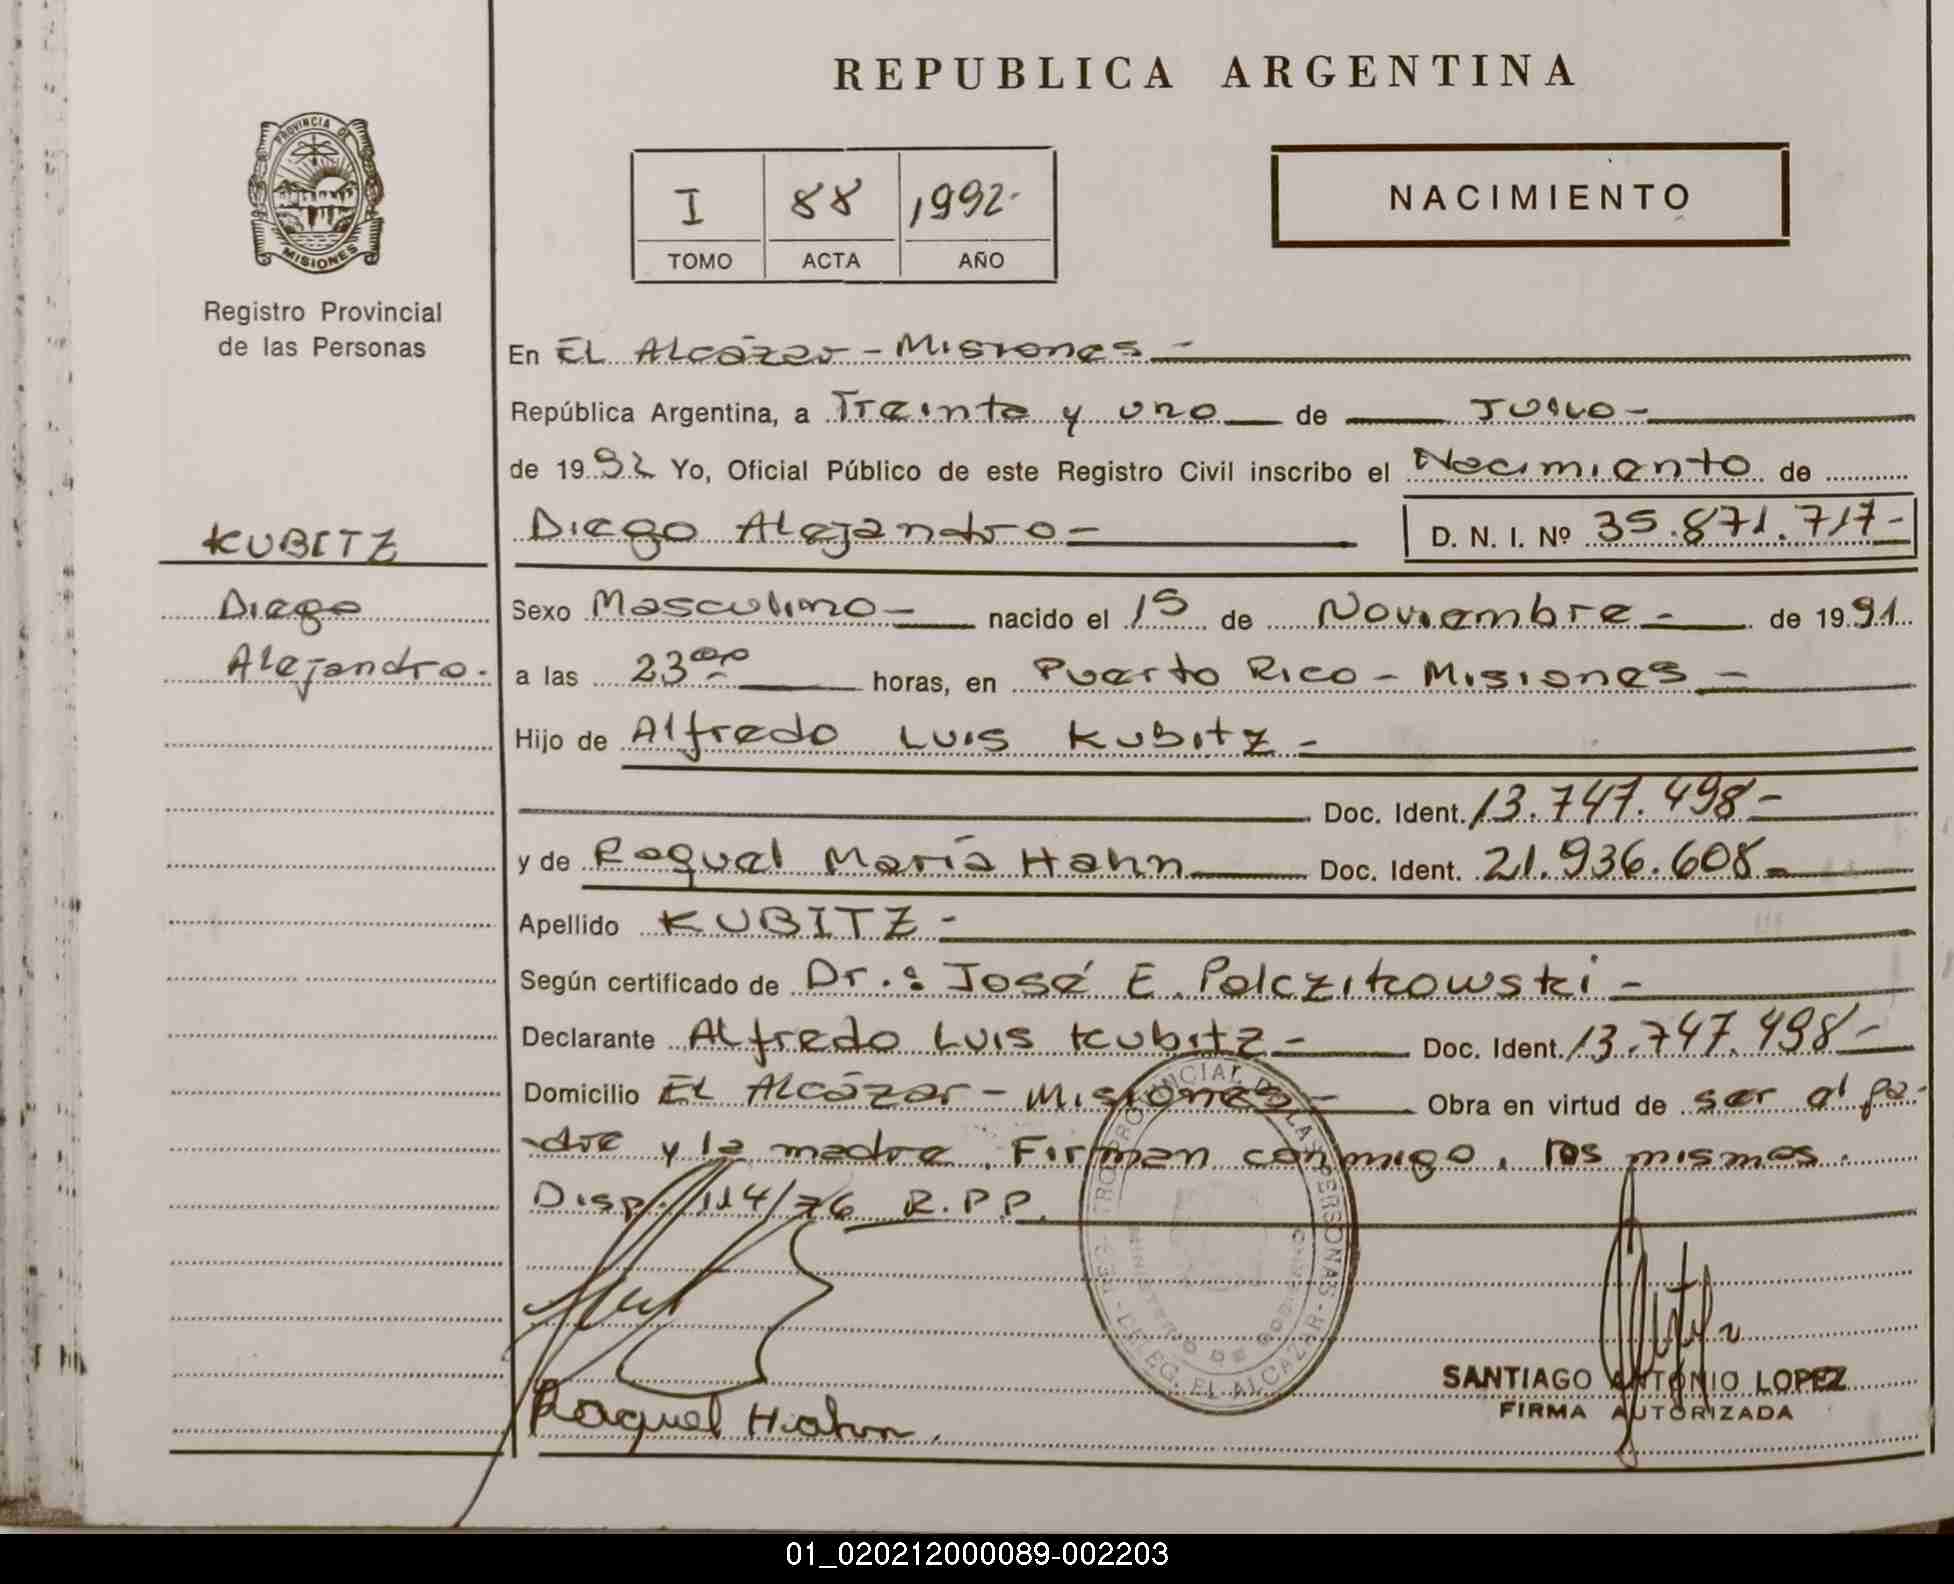 REPUBLICA ARGENTINA
PROVINCIA DE
MISIONES
Registro Provincial
de las Personas
I 88 1992-
TOMO ACTA AÑO
NACIMIENTO
En EL Alcázar - Misiones -
República Argentina, a Treinta y uno de Julio -
de 19 92 Yo, Oficial Público de este Registro Civil inscribo el Nacimiento de
KUBITZ
Diego
Alejandro.
Diego Alejandro - D. N. I. Nº 35.871.717-
Sexo Masculino - nacido el 15 de Noviembre - de 19 91
a las 23 00 horas, en Puerto Rico - Misiones -
Hijo de Alfredo Luis Kubitz -
Doc. Ident. 13.747.498-
y de Raquel María Hahn Doc. Ident. 21.936.608-
Apellido KUBITZ -
Según certificado de Dr.: José E. Polczikowski -
Declarante Alfredo Luis Kubitz - Doc. Ident. 13.747.498-
Domicilio EL Alcázar - Misiones - Obra en virtud de ser el pa-
dre y la madre. Firman conmigo, los mismos.
Disp. 114/76 R.P.P.
PROVINCIAL DE LAS PERSONAS
MINISTERIO DE GOBIERNO
DELEG. EL ALCAZAR
SANTIAGO ANTONIO LOPEZ
FIRMA AUTORIZADA
Raquel Hahn.
01_020212000089-002203